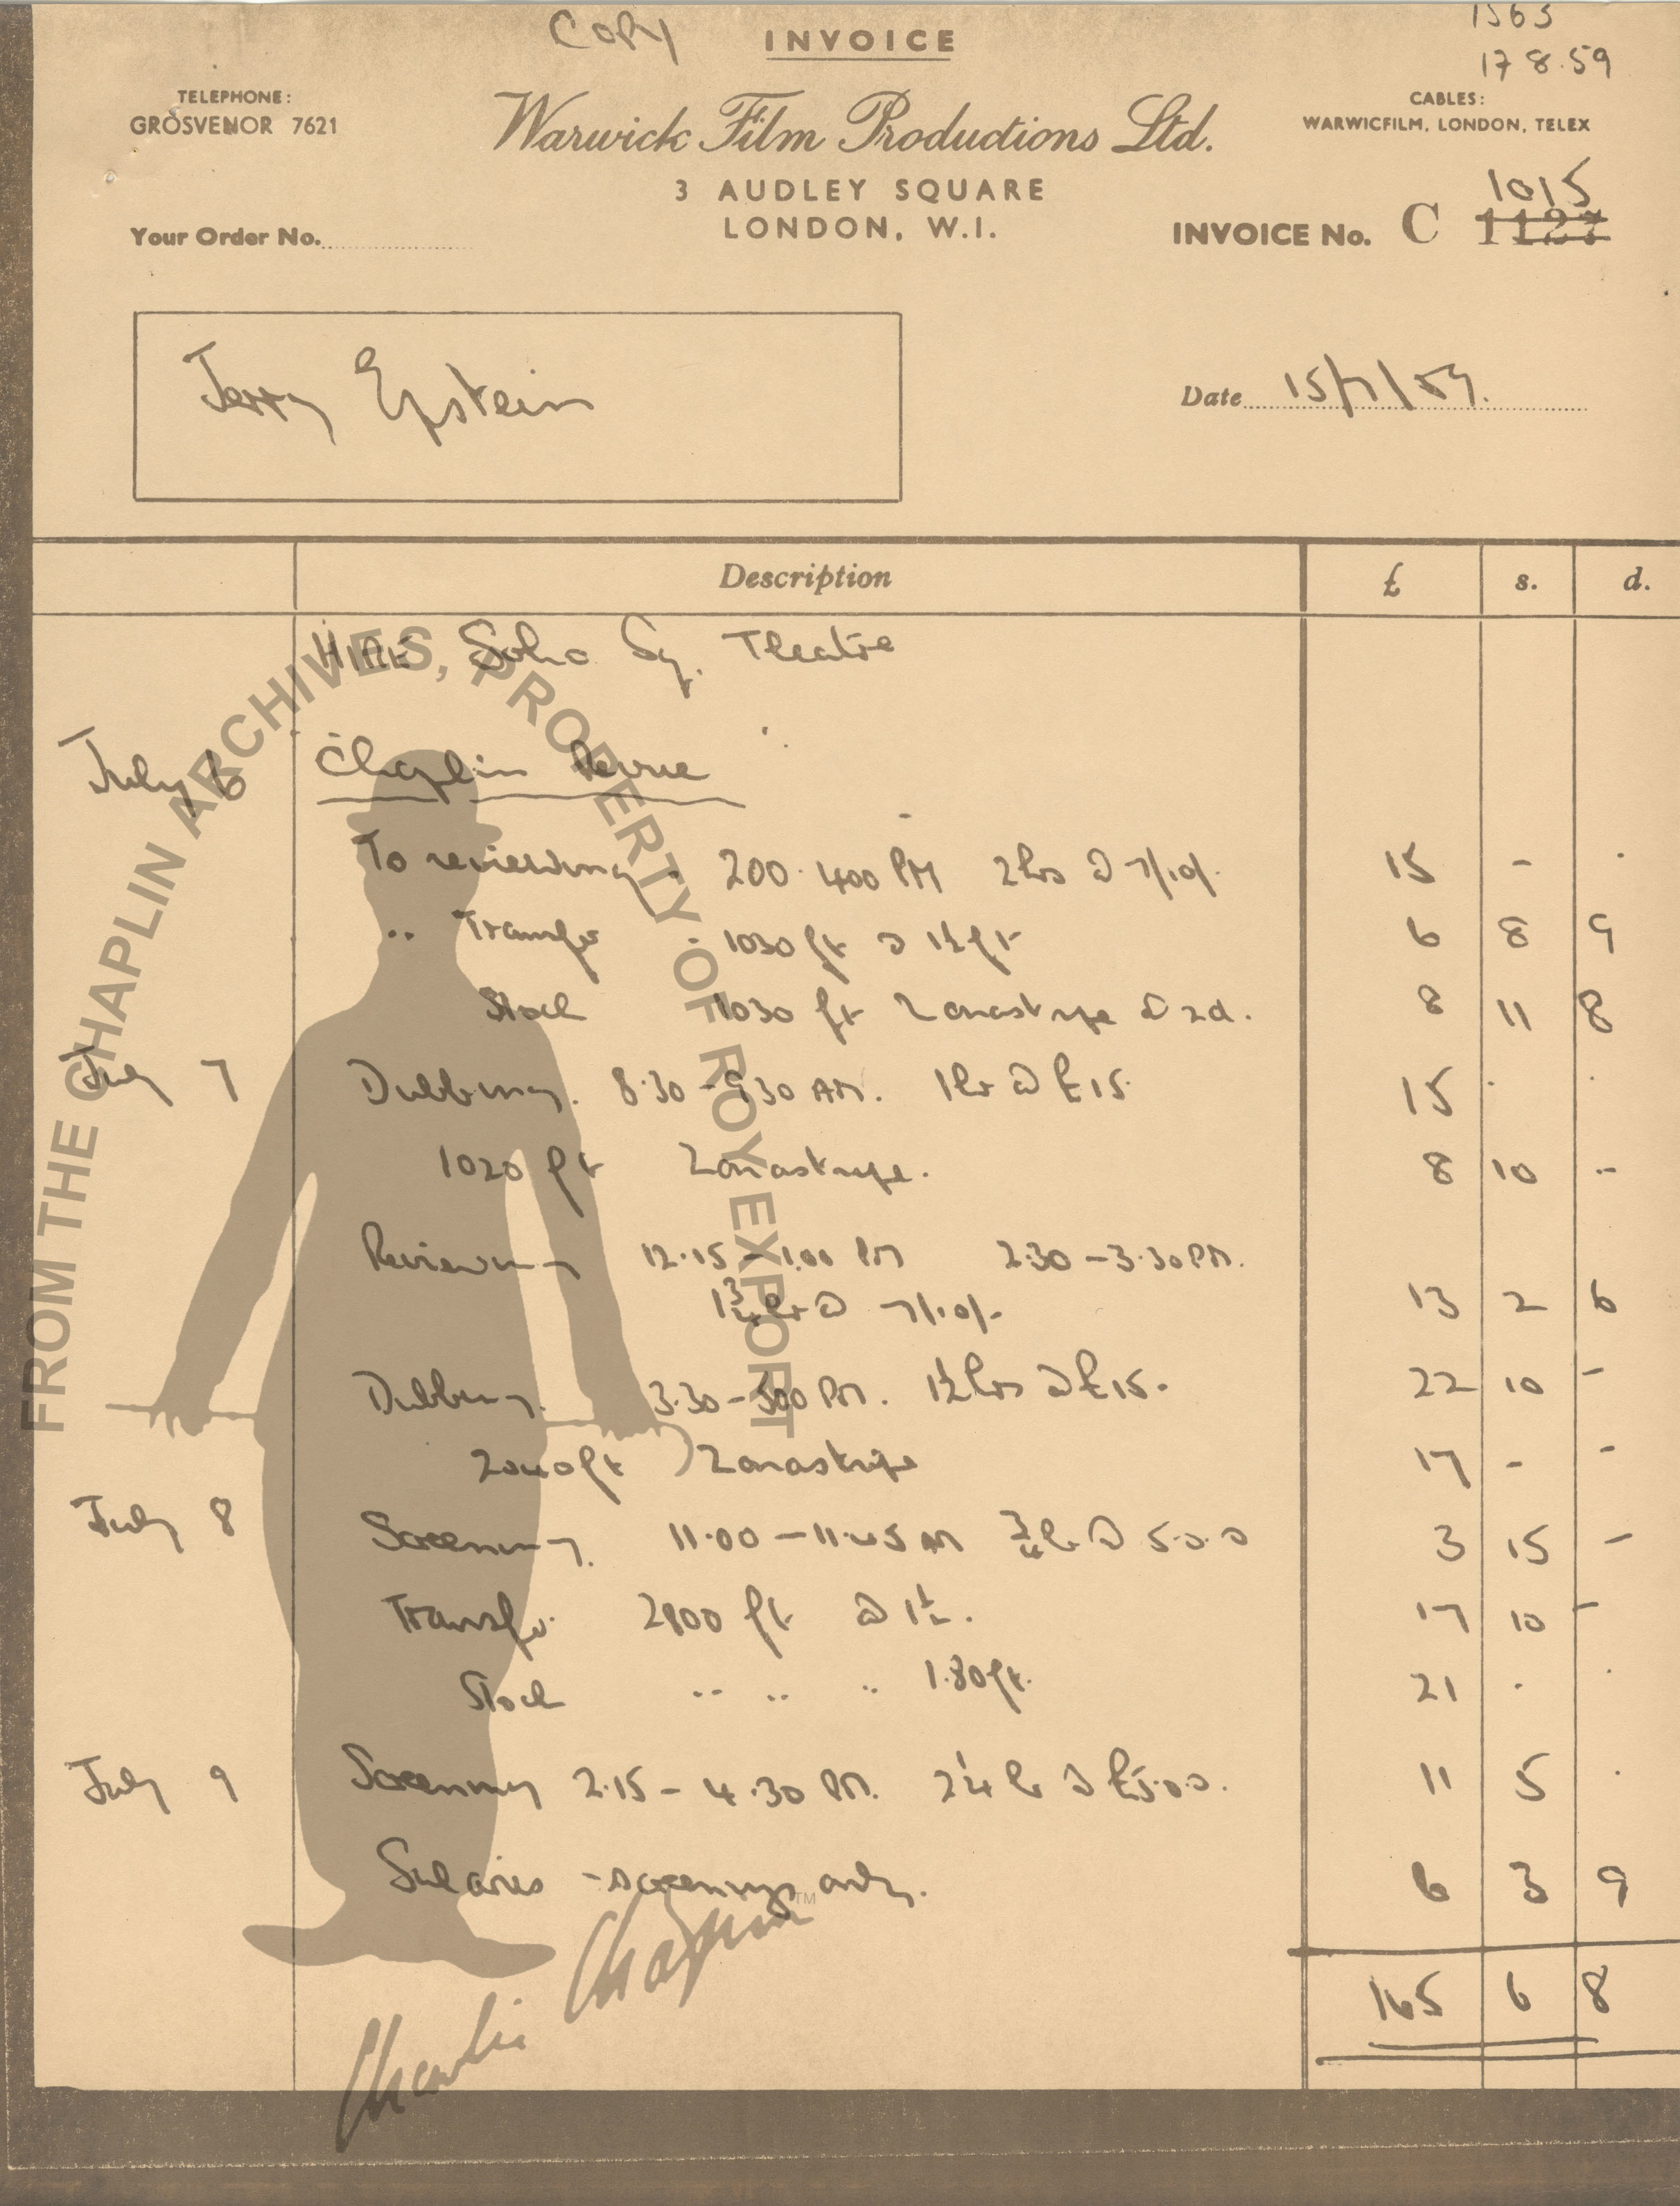 Copy
INVOICE
1563
17 8.59
TELEPHONE:
GROSVENOR 7621
Warwick Film Productions Ltd.
CABLES:
WARWICFILM, LONDON, TELEX
3 AUDLEY SQUARE
LONDON, W.1.
Your Order No.
INVOICE No. C 1127
1015
Jerry Epstein
Date 15/7/59.
Description £ s. d.
HIRE Soho Sq. Theatre
July 6 Chaplin Revue
To reviewing. 200-400 PM 2 hrs @ 7/10/- 15 - -
" Transfer 1030 ft @ 1½ ft 6 8 9
Stock 1030 ft Zonastripe @ 2d. 8 11 8
July 7 Dubbing. 8.30-9.30 AM. 1 hr @ £15 15 . .
1020 ft Zonastripe. 8 10 -
Reviewing 12.15-1.00 PM 2.30-3.30 PM.
1¾ hr @ 7/10/- 13 2 6
Dubbing. 3.30-5.00 PM. 1½ hrs @ £15. 22 10 -
2040 ft Zonastripe 17 - -
July 8 Screening. 11.00-11.45 AM ¾ hr @ 5.0.0 3 15 -
Transfer 2800 ft @ 1½. 17 10 -
Stock " " " 1.80 ft. 21 . .
July 9 Screening 2.15-4.30 PM. 2¼ hr @ £5.0.0. 11 5 .
Salaries - screenings only. 6 3 9
165 6 8
FROM THE CHAPLIN ARCHIVES, PROPERTY OF ROY EXPORT
Charlie Chaplin TM